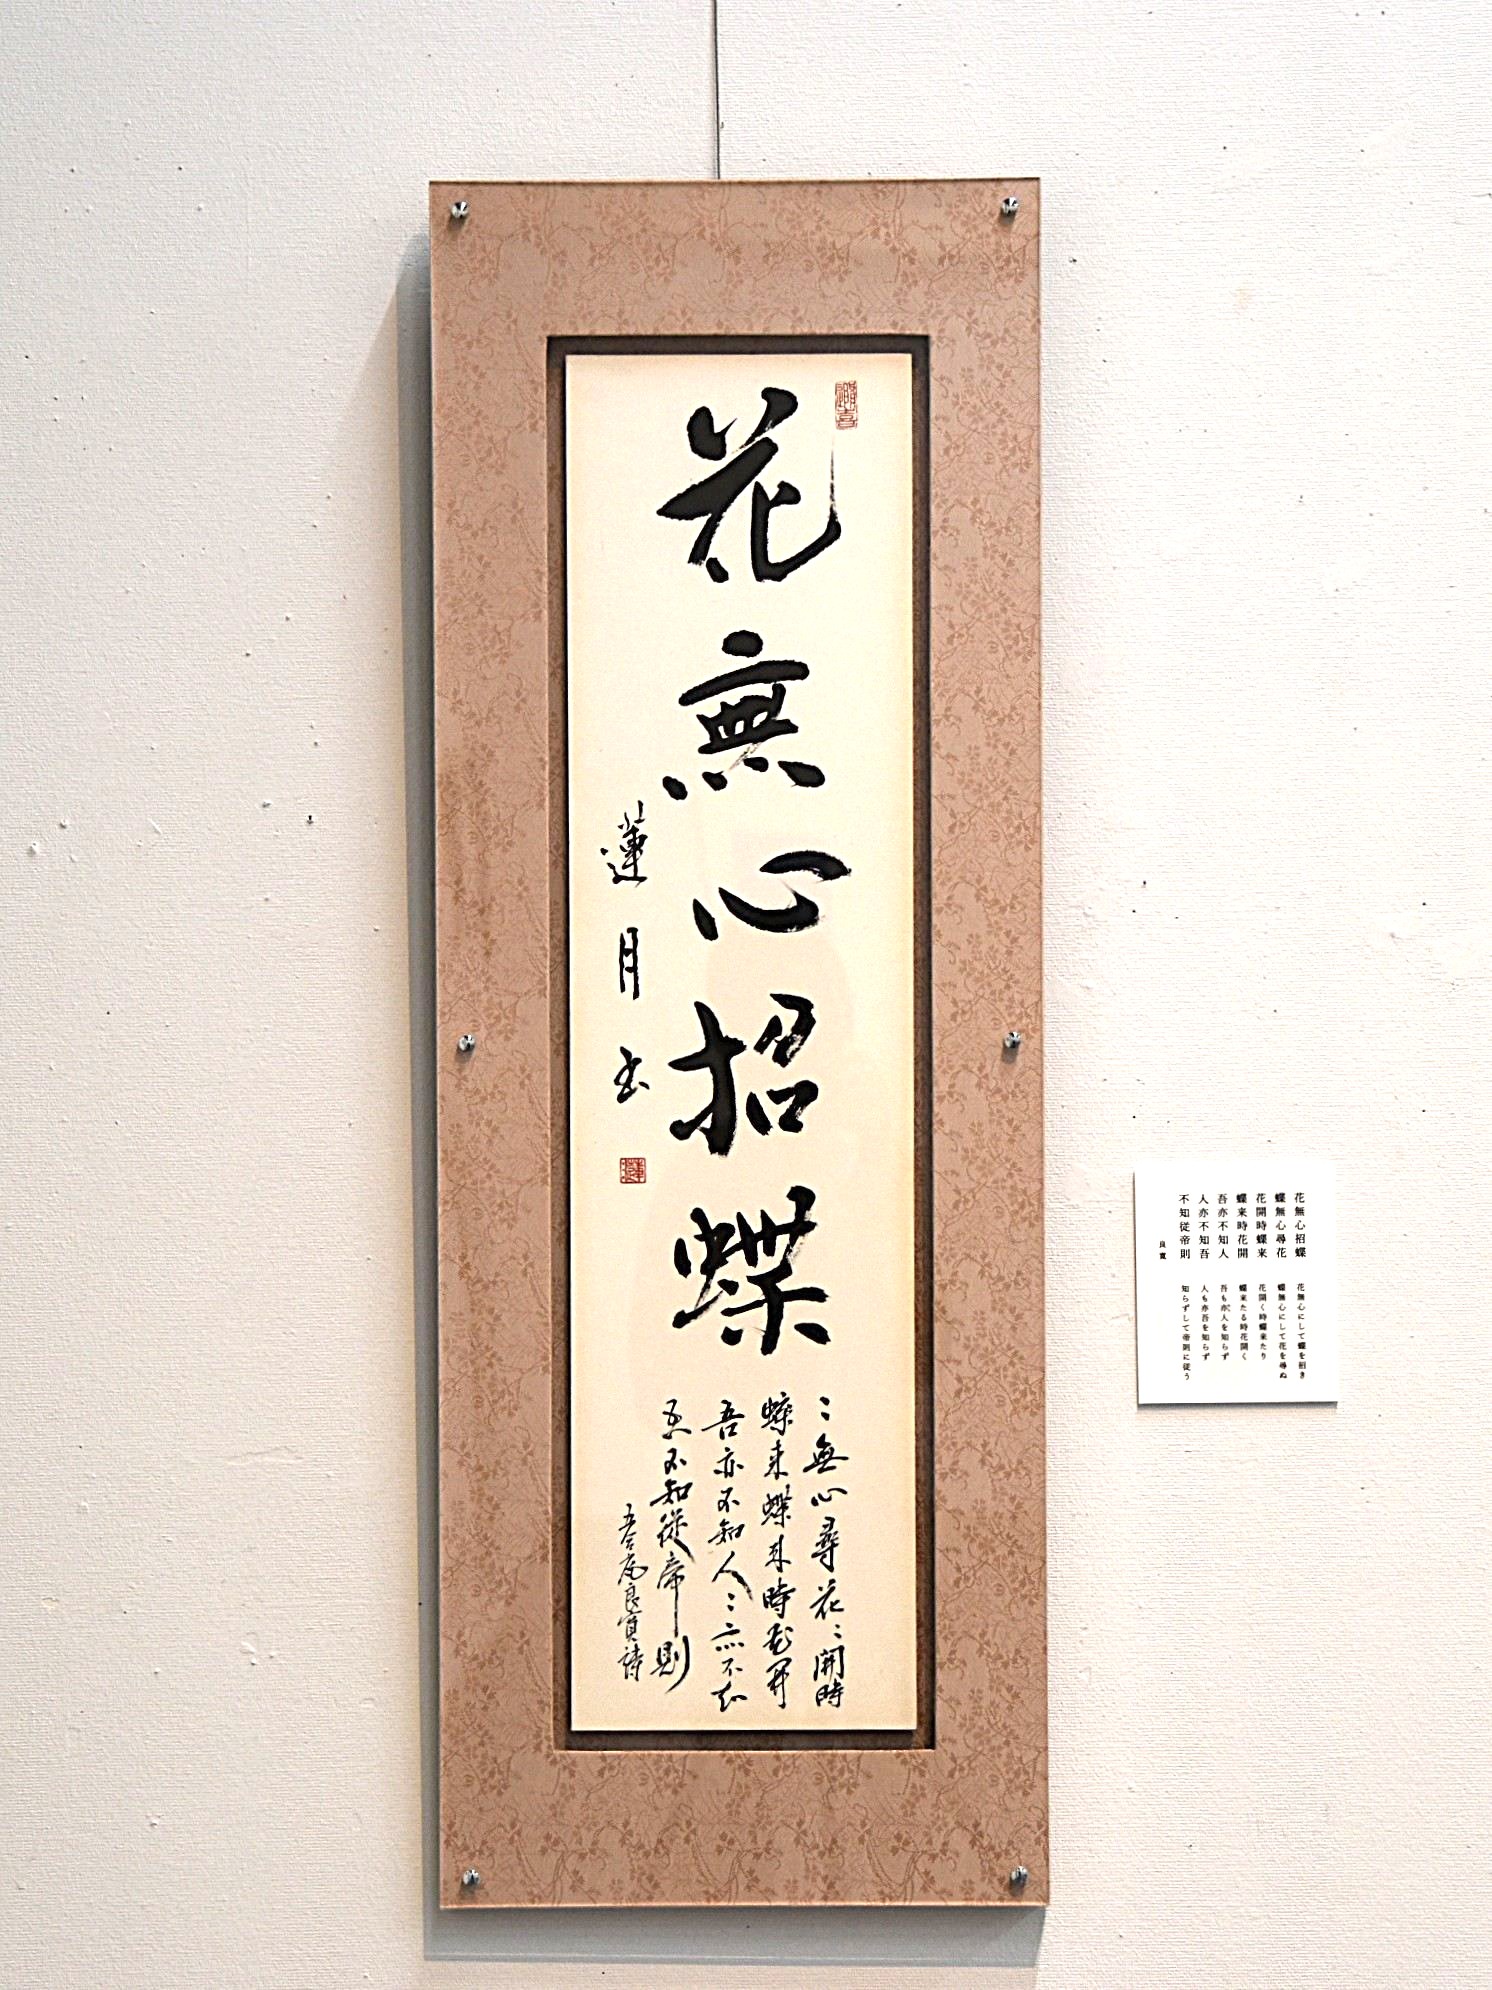 花無心招蝶
〻無心尋花〻開時
蝶来蝶来時花開
吾亦不知人〻亦不知
吾不知従帝則
五合庵良寛詩
蓮月書
花無心招蝶 花無心にして蝶を招き
蝶無心尋花 蝶無心にして花を尋ぬ
花開時蝶来 花開く時蝶来たり
蝶来時花開 蝶来たる時花開く
吾亦不知人 吾も亦人を知らず
人亦不知吾 人も亦吾を知らず
不知従帝則 知らずして帝則に従う
良寛